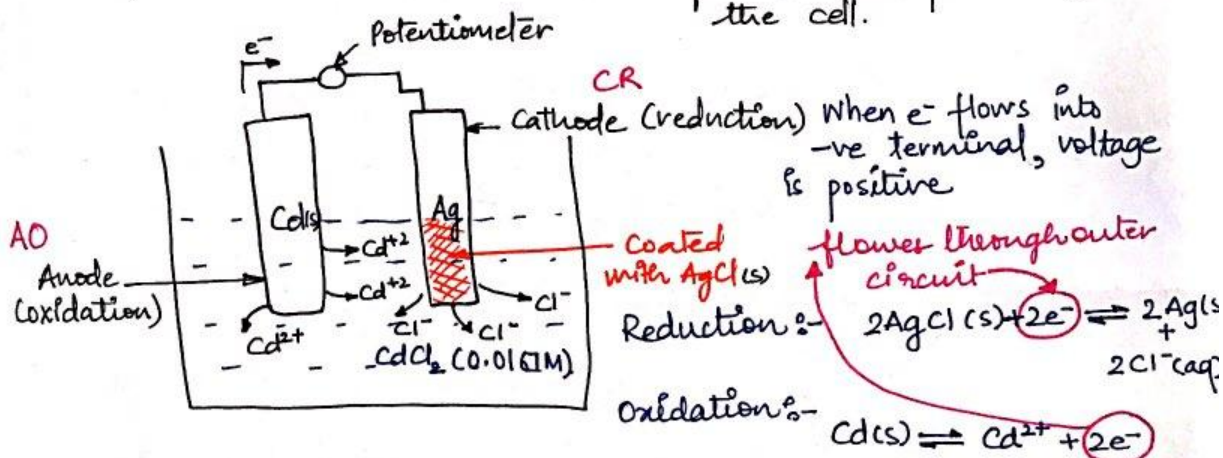 the cell.
Potentiometer
e⁻
CR
Cathode (reduction)
When e⁻ flows into
-ve terminal, voltage
is positive
AO
Anode
(oxidation)
Cd(s)
Ag
Cd⁺²
Cd⁺²
Cd²⁺
Cl⁻
Cl⁻
Cl⁻
CdCl₂ (0.0167M)
Coated
with AgCl(s)
flower through outer
circuit
Reduction :- 2AgCl (s) + 2e⁻ ⇌ 2Ag(s
+
2Cl⁻(aq)
Oxidation :- Cd(s) ⇌ Cd²⁺ + 2e⁻